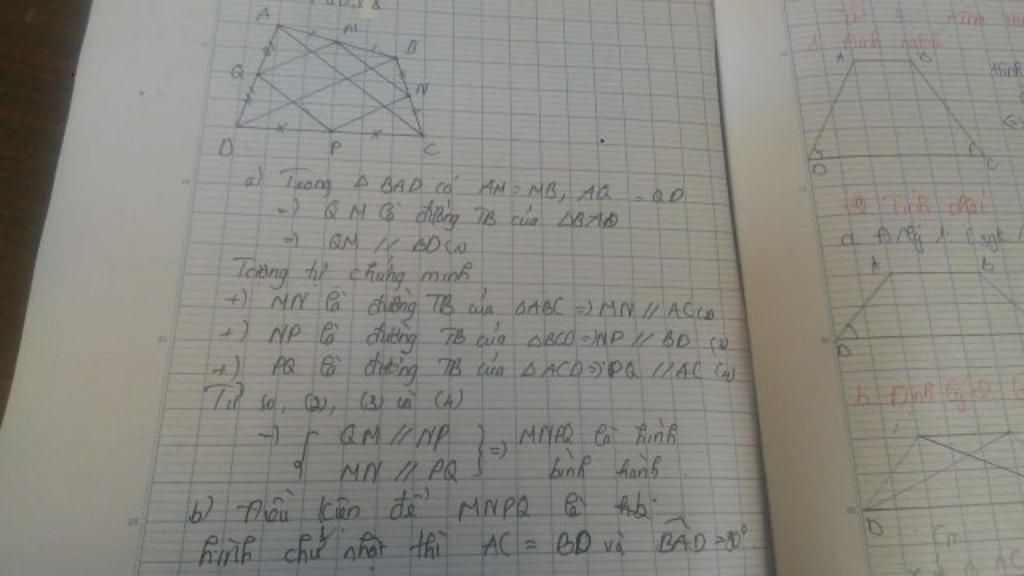 A M B
Q N
D P C
a) Trong Δ BAD có AM = MB, AQ = QD
=) QM là đường TB của ΔBAD
=) QM // BD (1)
Tương tự chứng minh
+) MN là đường TB của ΔABC =) MN // AC (2)
+) NP là đường TB của ΔBCD =) NP // BD (3)
+) PQ là đường TB của ΔACD =) PQ // AC (4)
Từ (1), (2), (3) và (4)
=) { QM // NP
MN // PQ } =) MNPQ là hình
bình hành
b) Điều kiện để MNPQ là
hình chữ nhật thì AC = BD và BAD = 90°
A B
D C
A B
D
D